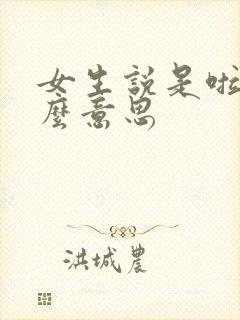 女生說是啦
麼意思
洪城農